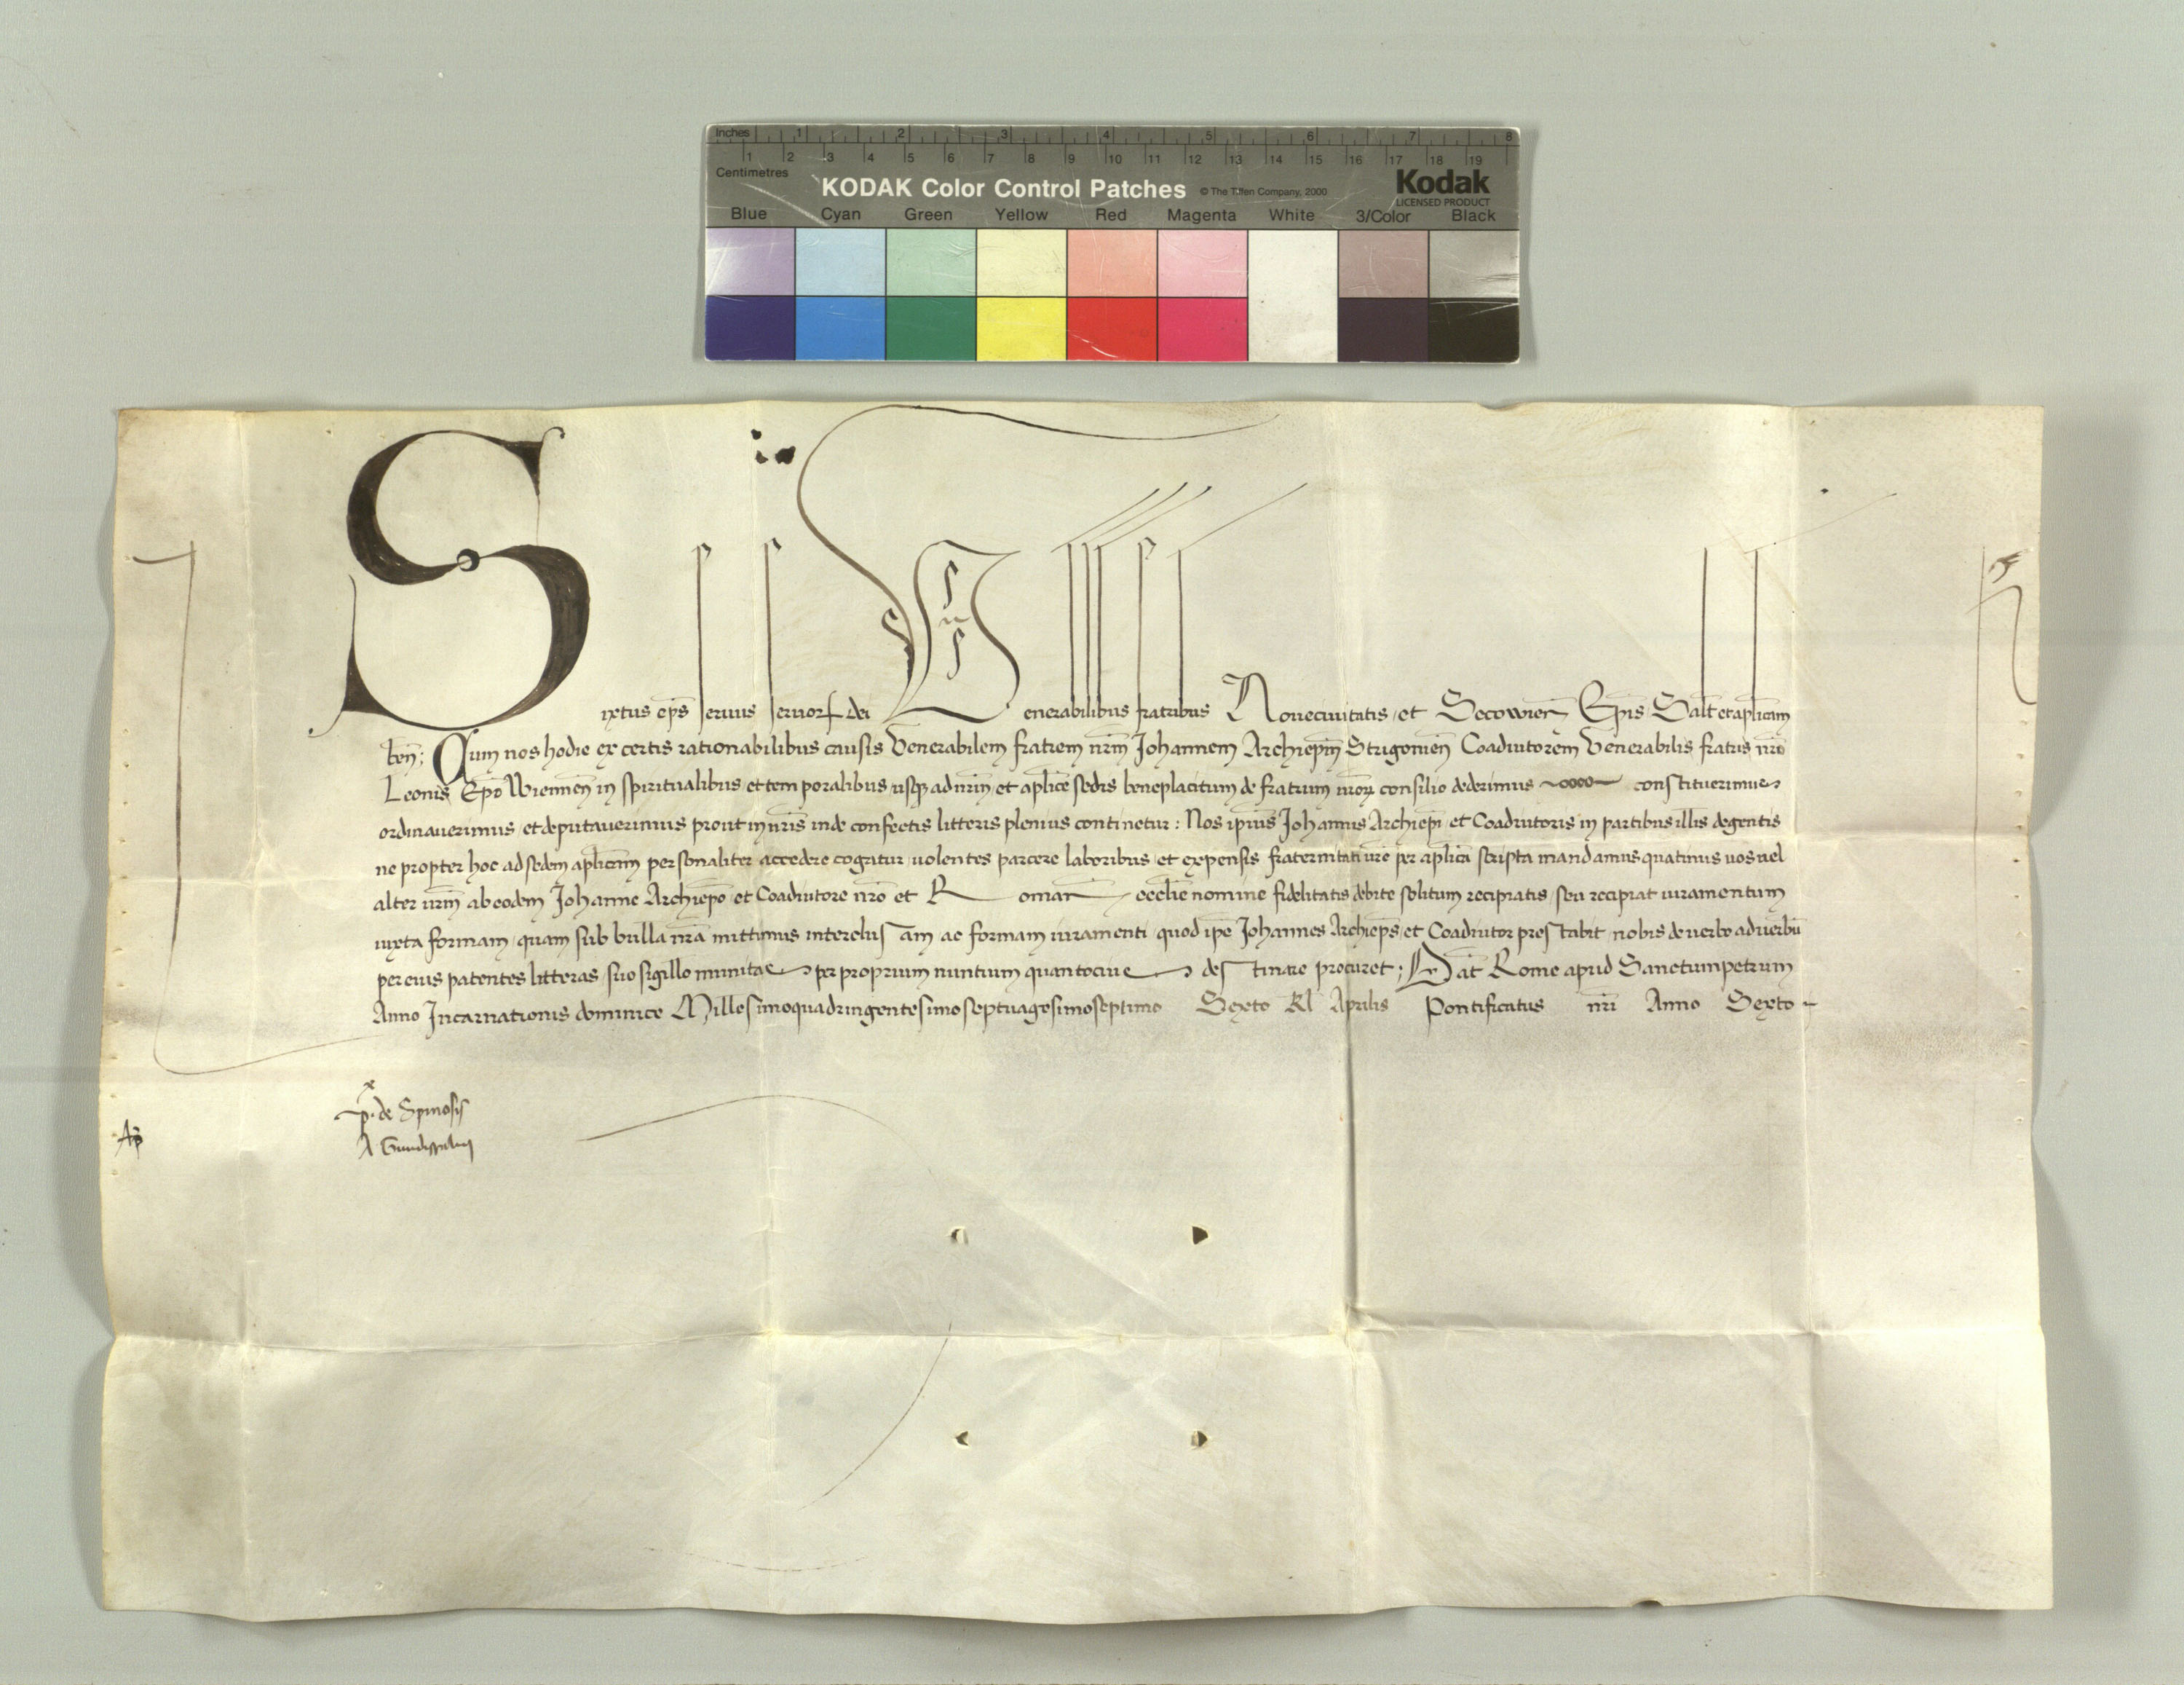 Inches 1 2 3 4 5 6 7 8
1 2 3 4 5 6 7 8 9 10 11 12 13 14 15 16 17 18 19
Centimetres
KODAK Color Control Patches © The Tiffen Company, 2000 Kodak
LICENSED PRODUCT
Blue Cyan Green Yellow Red Magenta White 3/Color Black
Sixtus ep̄s seruus seruorꝝ dei Venerabilibus fratribus Nouecivitatis et Secowien̄ Ep̄is Salt̄ et aplicam
ben̄; Cum nos hodie ex certis rationabilibus causis Venerabilem fratrem nr̄m Johannem Archiepm̄ Strigonien̄ Coadiutorem Venerabilis fratris nrī
Leonis Ep̄o Wiennen̄ in spiritualibus et temporalibus usqꝫ ad nr̄m et aplice sedis beneplacitum de fratrum nr̄oꝝ consilio dederimus constituerimus
ordinauerimus et deputauerimus prout in nr̄is inde confectis litteris plenius continetur: Nos ipīus Johannis Archiepī et Coadiutoris in partibus illis degentis
ne propter hoc ad sedem aplicam personaliter accedere cogatur uolentes parcere laboribus et expensis fraternitati vr̄e per aplica scripta mandamus quatinus uos uel
alter vr̄m ab eodem Johanne Archiepō et Coadiutore nr̄o et Roman̄ ecclie nomine fidelitatis debite solitum recipiatis seu recipiat iuramentum
iuxta formam quam sub bulla nr̄a mittimus interclusam ac formam iuramenti quod ipē Johannes Archiep̄s et Coadiutor prestabit nobis de uerbo ad uerbū
per eius patentes litteras suo sigillo munitas per proprium nuntium quantocius destinare procuret; Dat̄ Rome apud Sanctumpetrum
Anno Incarnationis dominice Millesimoquadringentesimoseptuagesimoseptimo Sexto kl̄ Aprilis Pontificatus nrī Anno Sexto
x
p. de Spinosis